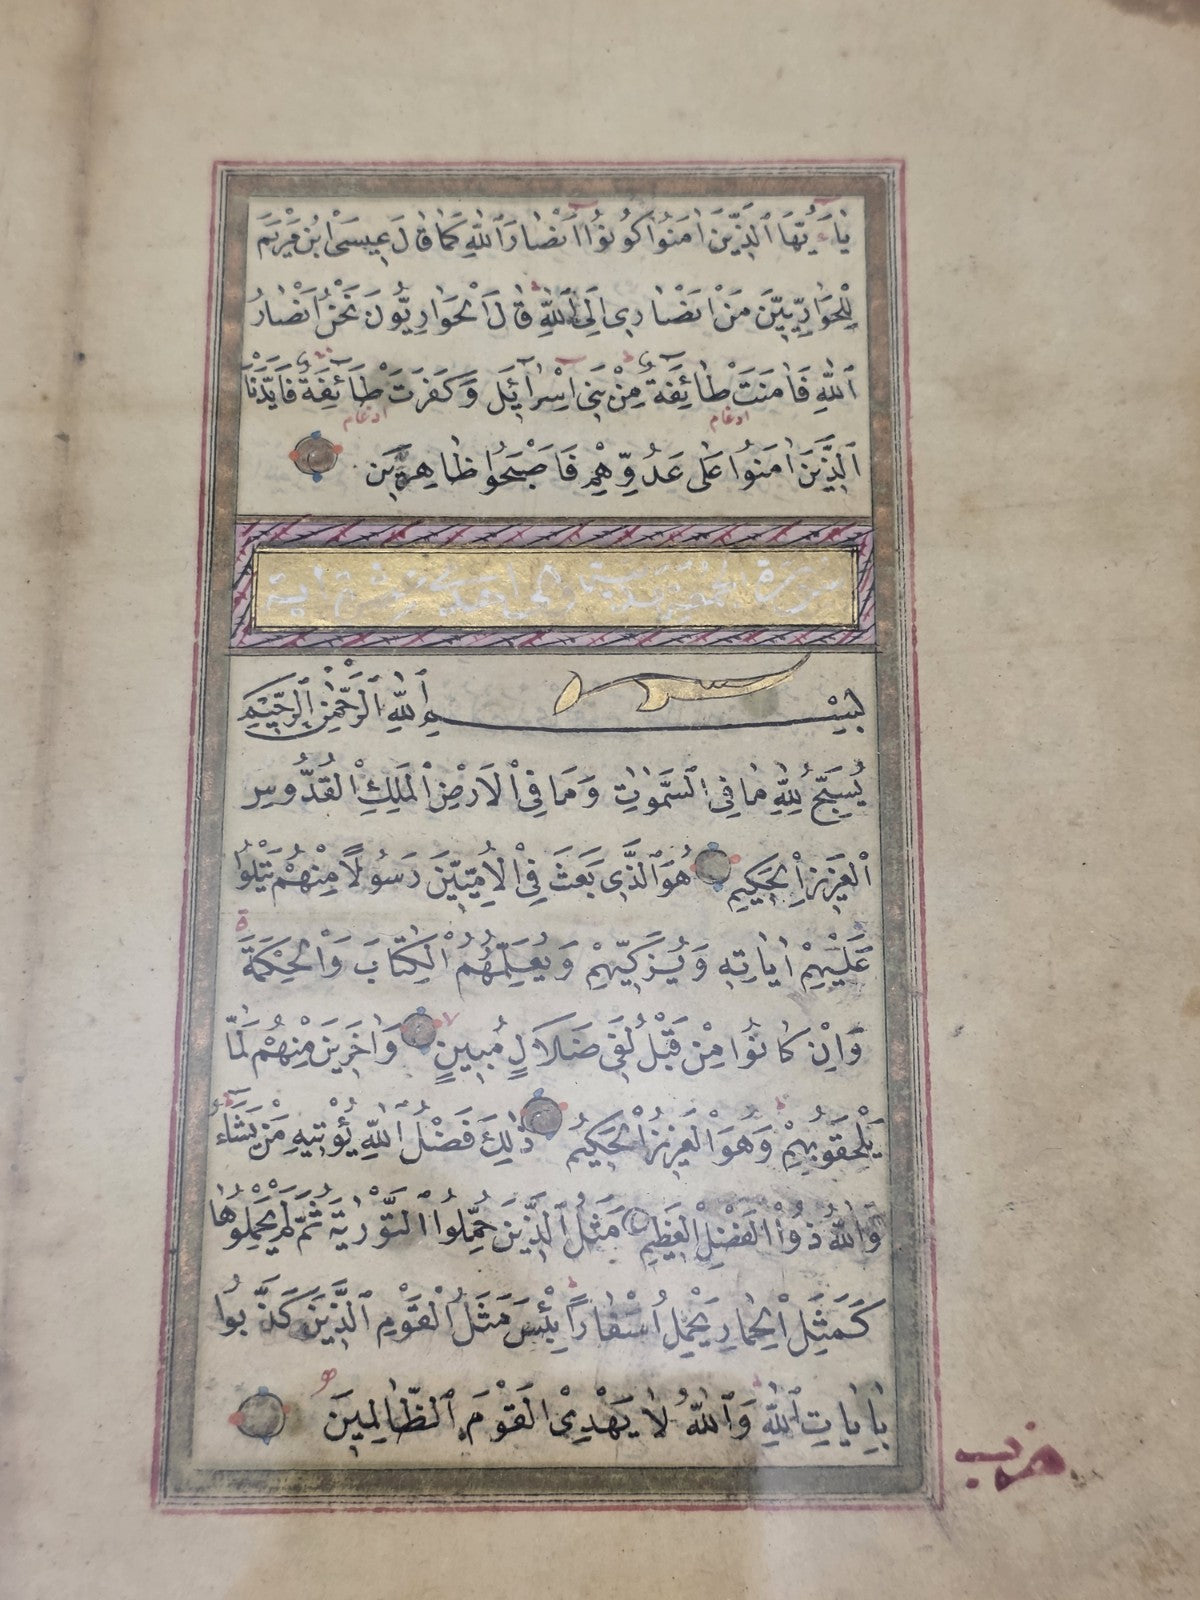 يَا أَيُّهَا الَّذِينَ اٰمَنُوا كُونُوا أَنْصَارَ اللّٰهِ كَمَا قَالَ عِيسَى ابْنُ مَرْيَمَ
لِلْحَوَارِيِّينَ مَنْ أَنْصَارِى إِلَى اللّٰهِ قَالَ الْحَوَارِيُّونَ نَحْنُ أَنْصَارُ
اللّٰهِ فَاٰمَنَتْ طَائِفَةٌ مِنْ بَنِى إِسْرَائِيلَ وَكَفَرَتْ طَائِفَةٌ فَأَيَّدْنَا
ادغام ادغام
الَّذِينَ اٰمَنُوا عَلٰى عَدُوِّهِمْ فَأَصْبَحُوا ظَاهِرِينَ
سورة الجمعة
بِسْمِ اللّٰهِ الرَّحْمٰنِ الرَّحِيمِ
يُسَبِّحُ لِلّٰهِ مَا فِى السَّمٰوَاتِ وَمَا فِى الْاَرْضِ الْمَلِكِ الْقُدُّوسِ
الْعَزِيزِ الْحَكِيمِ هُوَ الَّذِى بَعَثَ فِى الْاُمِّيِّينَ رَسُولًا مِنْهُمْ يَتْلُوا
عَلَيْهِمْ اٰيَاتِهِ وَيُزَكِّيهِمْ وَيُعَلِّمُهُمُ الْكِتَابَ وَالْحِكْمَةَ
وَاِنْ كَانُوا مِنْ قَبْلُ لَفِى ضَلَالٍ مُبِينٍ وَاٰخَرِينَ مِنْهُمْ لَمَّا
يَلْحَقُوا بِهِمْ وَهُوَ الْعَزِيزُ الْحَكِيمُ ذٰلِكَ فَضْلُ اللّٰهِ يُؤْتِيهِ مَنْ يَشَاءُ
وَاللّٰهُ ذُو الْفَضْلِ الْعَظِيمِ مَثَلُ الَّذِينَ حُمِّلُوا التَّوْرٰيةَ ثُمَّ لَمْ يَحْمِلُوهَا
كَمَثَلِ الْحِمَارِ يَحْمِلُ اَسْفَارًا بِئْسَ مَثَلُ الْقَوْمِ الَّذِينَ كَذَّبُوا
بِاٰيَاتِ اللّٰهِ وَاللّٰهُ لَا يَهْدِى الْقَوْمَ الظَّالِمِينَ
حزب